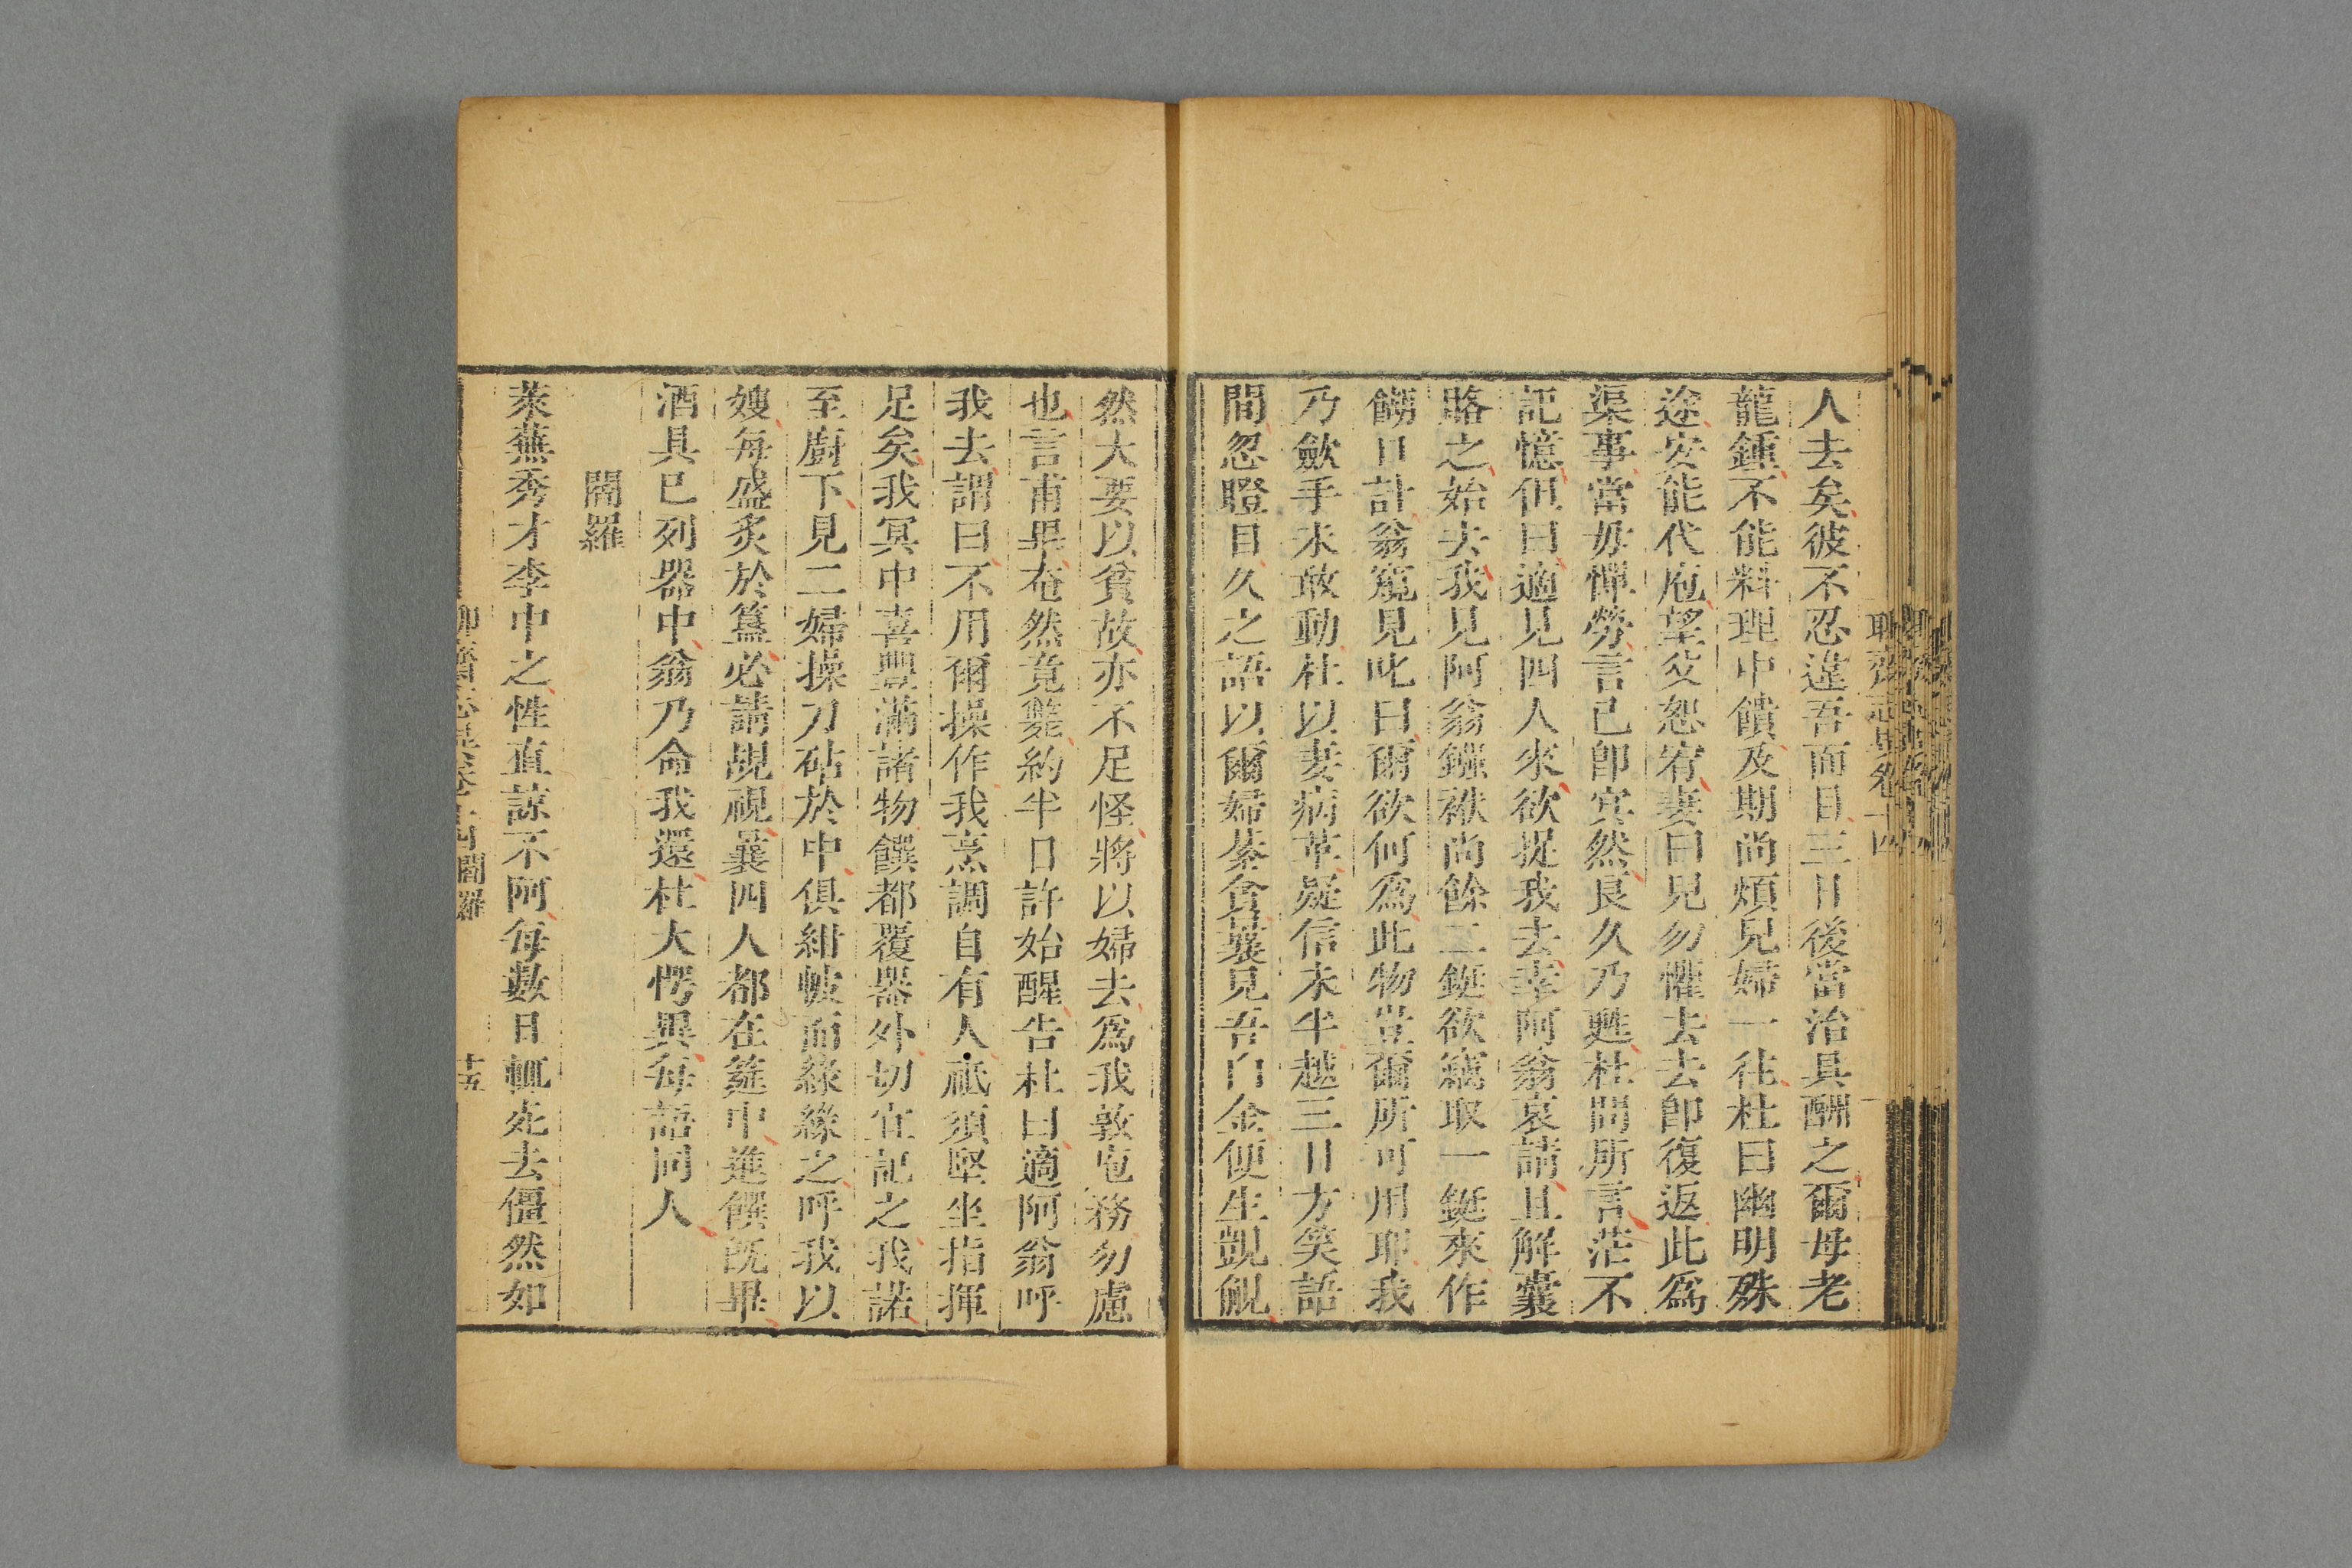 聊齋志異卷十四
人去矣彼不忍違吾而目三日後當治具酬之爾母老
龍鍾不能料理中饋及期尚煩兒婦一往杜曰幽明殊
途安能代庖望父恕宥妻曰兒勿懼去去即復返此爲
渠事當毋憚勞言已即冥然良久乃甦杜問所言茫不
記憶但曰適見四人來欲捉我去幸阿翁哀請且解囊
賂之始去我見阿翁鏹袱尚餘二鋌欲竊取一鋌來作
餬口計翁窺見叱曰爾欲何爲此物豈爾所可用耶我
乃歛手未敢動杜以妻病革疑信未半越三日方笑語
間忽瞪目久之語以爾婦綦貪曩見吾白金便生覬覦
然大要以貧故亦不足怪將以婦去爲我敦庖務勿慮
也言甫畢奄然竟斃約半日許始醒告杜曰適阿翁呼
我去謂曰不用爾操作我烹調自有人祗須堅坐指揮
足矣我冥中喜豐滿諸物饌都覆器外切宜記之我諾
至廚下見二婦操刀砧於中俱紺帔而綠緣之呼我以
嫂每盛炙於簋必請覘視曩四人都在筵中進饌既畢
酒具已列器中翁乃命我還杜大愕異每語同人
閻羅
萊蕪秀才李中之性直諒不阿每數日輒死去僵然如
聊齋志異卷十四閻羅
十五